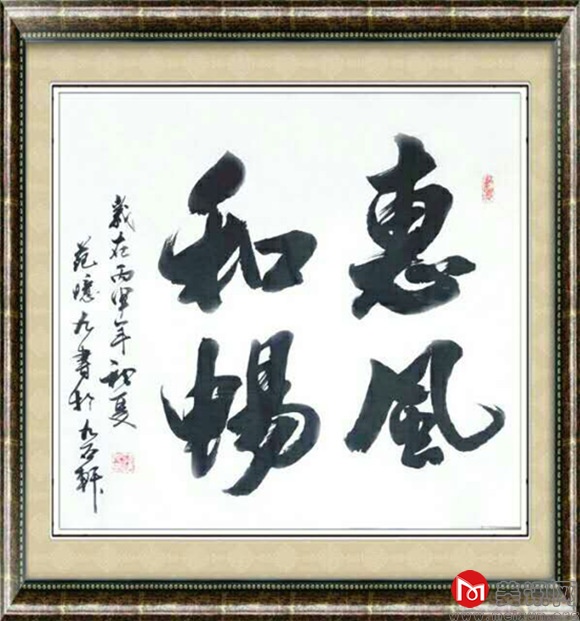 惠風
和暢
歲在丙申年初夏
范德元書於九石軒